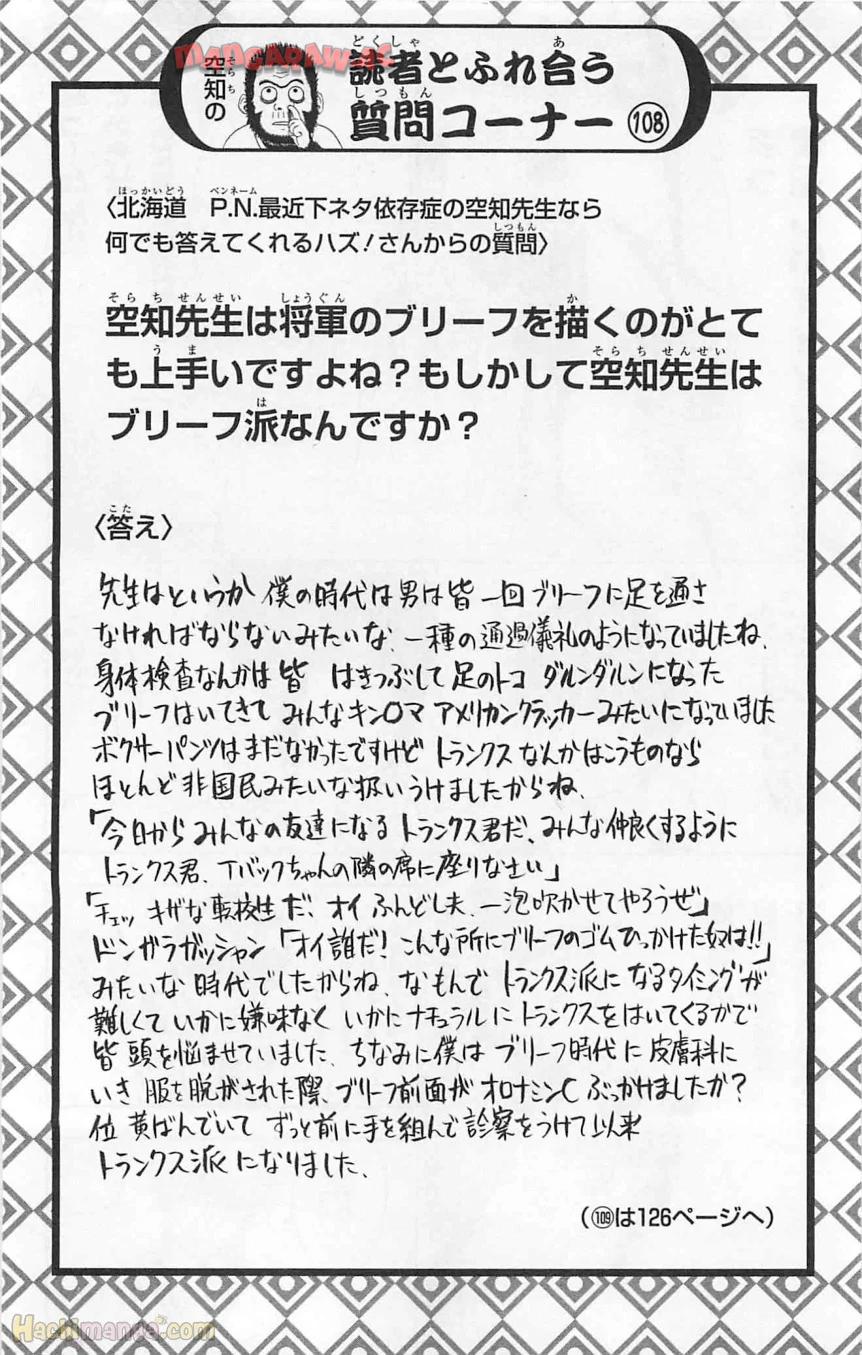 MANGARAW.AC
空知の
読者とふれ合う
質問コーナー 108
〈北海道 P.N.最近下ネタ依存症の空知先生なら
何でも答えてくれるハズ!さんからの質問〉
空知先生は将軍のブリーフを描くのがとて
も上手いですよね?もしかして空知先生は
ブリーフ派なんですか?
〈答え〉
先生はというか 僕の時代は男は皆 一回ブリーフに足を通さ
なければならないみたいな、一種の通過儀礼のようになっていましたね、
身体検査なんかは皆 はきつぶして足のトコ ダルンダルンになった
ブリーフはいてきて みんなキン〇マ アメリカンクラッカーみたいになっていました
ボクサーパンツはまだなかったですけど トランクスなんかはこうものなら
ほとんど非国民みたいな扱いうけましたからね、
「今日からみんなの友達になるトランクス君だ、みんな仲良くするように
トランクス君、Tバックちゃんの隣の席に座りなさい」
「チェッ キザな転校生だ、オイ ふんどし夫、一泡吹かせてやろうぜ」
ドンガラガッシャン「オイ誰だ!こんな所にブリーフのゴムひっかけた奴は!!」
みたいな時代でしたからね、なもんで トランクス派になるタイミングが
難しくて いかに嫌味なく いかにナチュラルにトランクスをはいてくるかで
皆 頭を悩ませていました、ちなみに僕は ブリーフ時代に皮膚科に
いき 服を脱がされた際、ブリーフ前面が オロナミンC ぶっかけましたか?
位 黄ばんでいて ずっと前に手を組んで診察をうけて以来
トランクス派になりました、
(109は126ページへ)
Hachimanga.com